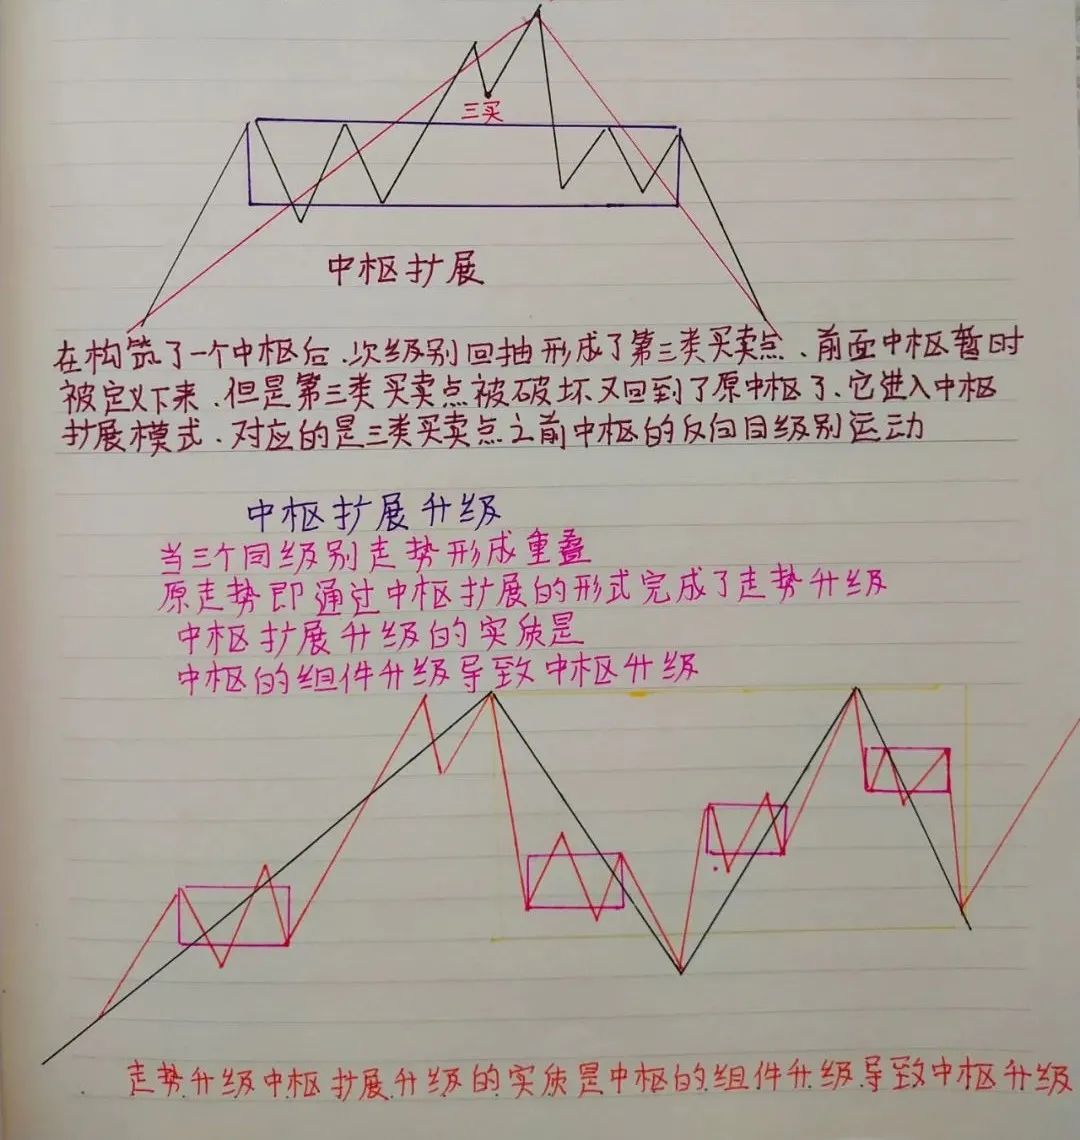 三买
中枢扩展
在构筑了一个中枢后、次级别回抽形成了第三类买卖点、前面中枢暂时
被定义下来、但是第三类买卖点被破坏又回到了原中枢了、它进入中枢
扩展模式、对应的是三类买卖点之前中枢的反向同级别运动
中枢扩展升级
当三个同级别走势形成重叠
原走势即通过中枢扩展的形式完成了走势升级
中枢扩展升级的实质是
中枢的组件升级导致中枢升级
走势升级中枢扩展升级的实质是中枢的组件升级导致中枢升级